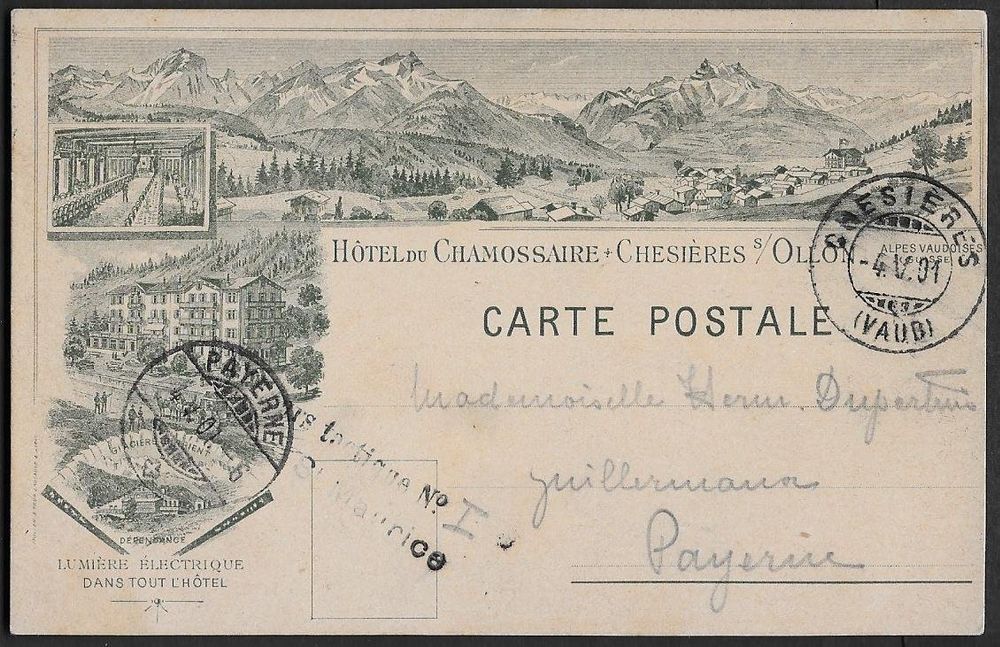 HÔTEL DU CHAMOSSAIRE + CHESIÈRES S/OLLON
ALPES VAUDOISES
CARTE POSTALE
CHESIÈRES
-4.V.01
(VAUD)
PAYERNE
4.V.01
GLACIÈRE
DÉPENDANCE
LUMIÈRE ÉLECTRIQUE
DANS TOUT L'HÔTEL
tactique No I
St Maurice
Mademoiselle
Payerne